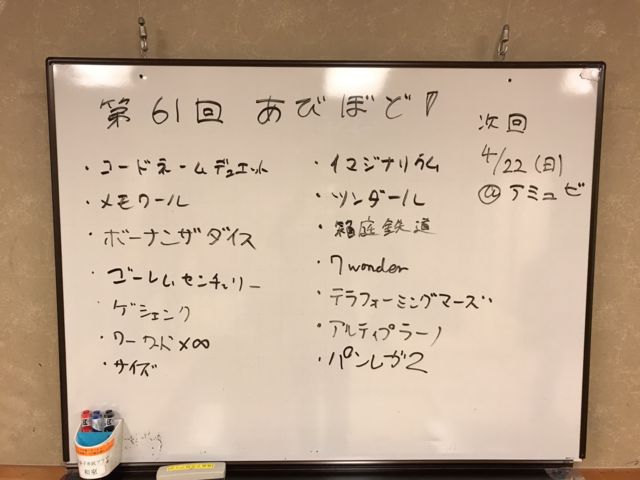 第61回 あびぼど!
・コードネームデュエット
・メモワール
・ボーナンザダイス
・ゴーレムセンチュリー
・ゲシェンク
・ワーワード×∞
・サイズ
・イマジナリウム
・ツンダール
・箱庭鉄道
・7 wonder
・テラフォーミングマーズ
・アルティプラーノ
・パンレガ2
次回
4/22(日)
@アミュゼ
和室